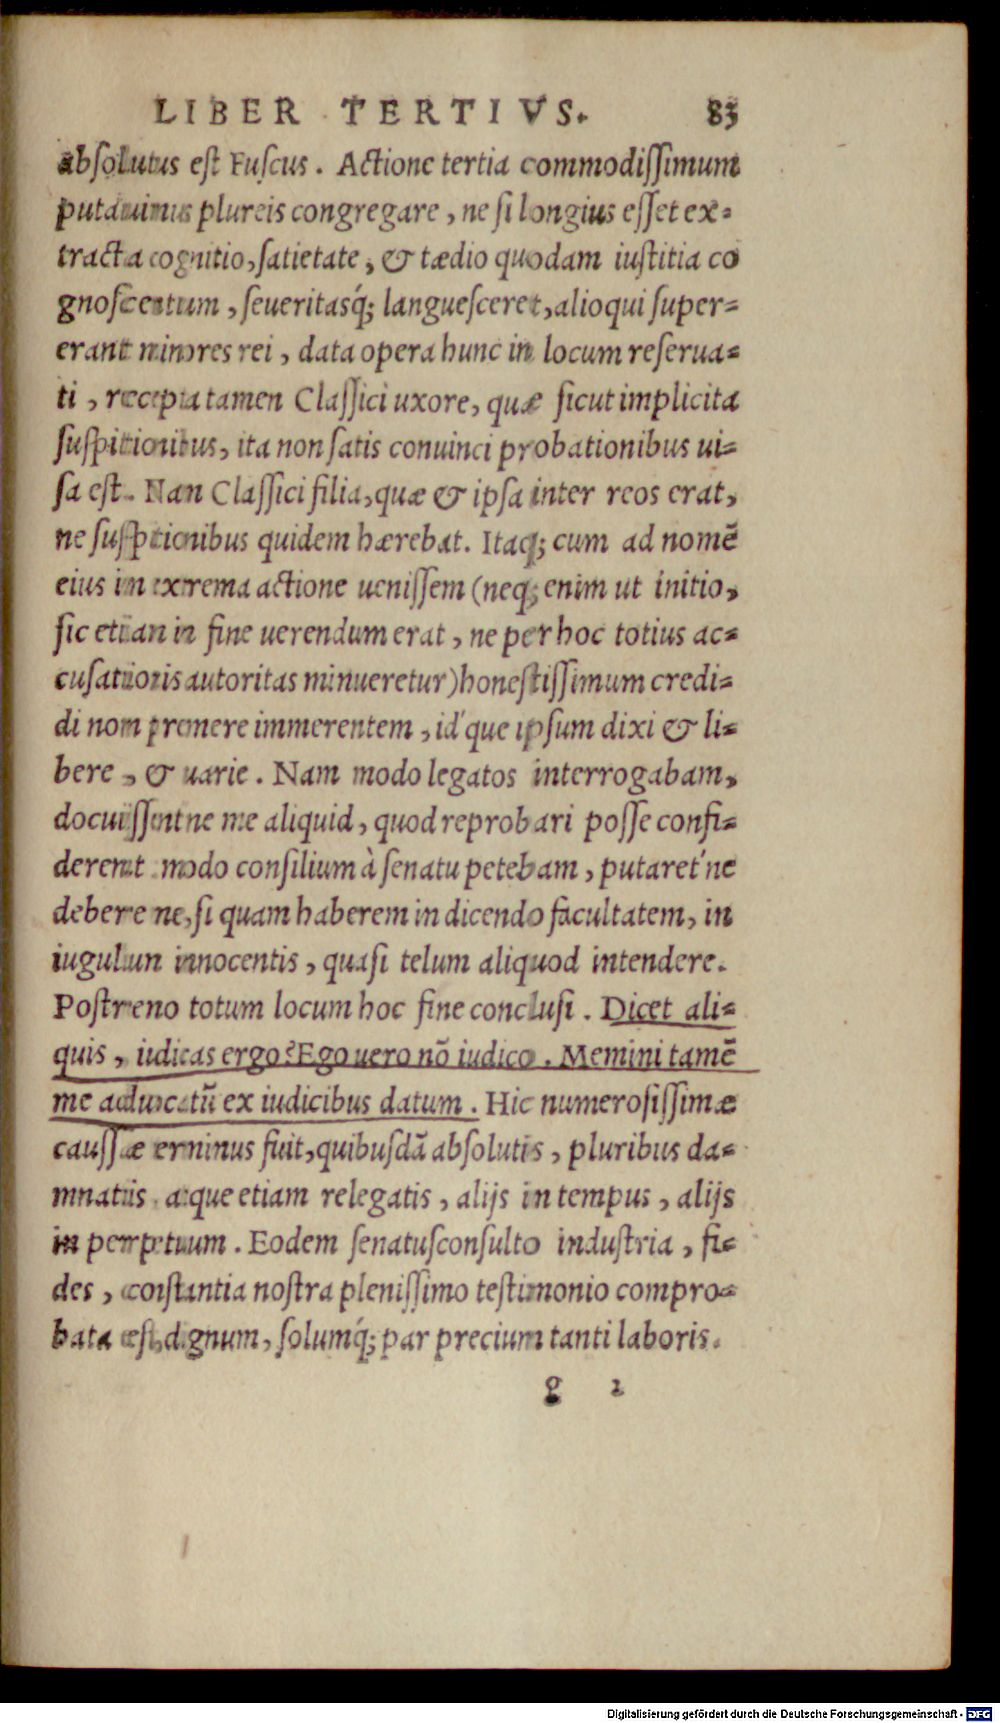 LIBER TERTIVS. 83
absolutus est Fuscus. Actione tertia commodissimum
putauimus plureis congregare, ne si longius esset ex=
tracta cognitio, satietate, & tædio quodam iustitia co
gnoscentum, seueritasq́; languesceret, alioqui super=
erant minores rei, data opera hunc in locum reserua=
ti, recepta tamen Classici uxore, quæ sicut implicita
suspitionibus, ita non satis conuinci probationibus ui=
sa est. Nan Classici filia, quæ & ipsa inter reos erat,
ne suspitionibus quidem hærebat. Itaq; cum ad nomē
eius in extrema actione uenissem (neq; enim ut initio,
sic etian in fine uerendum erat, ne per hoc totius ac=
cusationis autoritas minueretur) honestissimum credi=
di non premere immerentem, id'que ipsum dixi & li=
bere, & uarie. Nam modo legatos interrogabam,
docuissentne me aliquid, quod reprobari posse confi=
derent modo consilium à senatu petebam, putaret'ne
debere ne, si quam haberem in dicendo facultatem, in
iugulun innocentis, quasi telum aliquod intendere.
Postreno totum locum hoc fine conclusi. Dicet ali=
quis, iudicas ergo? Ego uero nō iudico. Memini tamē
me aduocatū ex iudicibus datum. Hic numerosissimæ
caussæ erninus fuit, quibusdā absolutis, pluribus da=
mnatis atque etiam relegatis, alijs in tempus, alijs
in perpetuum. Eodem senatusconsulto industria, fi=
des, constantia nostra plenissimo testimonio compro=
bata est, dignum, solumq́; par precium tanti laboris.
g 2
Digitalisierung gefördert durch die Deutsche Forschungsgemeinschaft - DFG